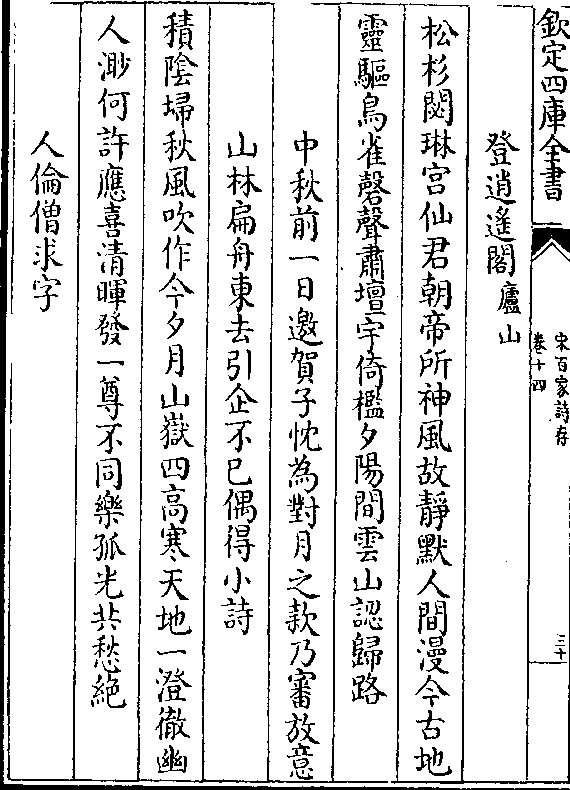 欽定四庫全書
宋百家詩存
卷十四
三十
登逍遙閣廬山
松杉閟琳宮仙君朝帝所神風故靜默人間漫今古地
靈驅鳥雀磬聲肅壇宇倚檻夕陽間雲山認歸路
中秋前一日邀賀子忱為對月之款乃審放意
山林扁舟東去引企不已偶得小詩
積陰埽秋風吹作今夕月山嶽四高寒天地一澄徹幽
人渺何許應喜清暉發一尊不同樂孤光共愁絶
人倫僧求字